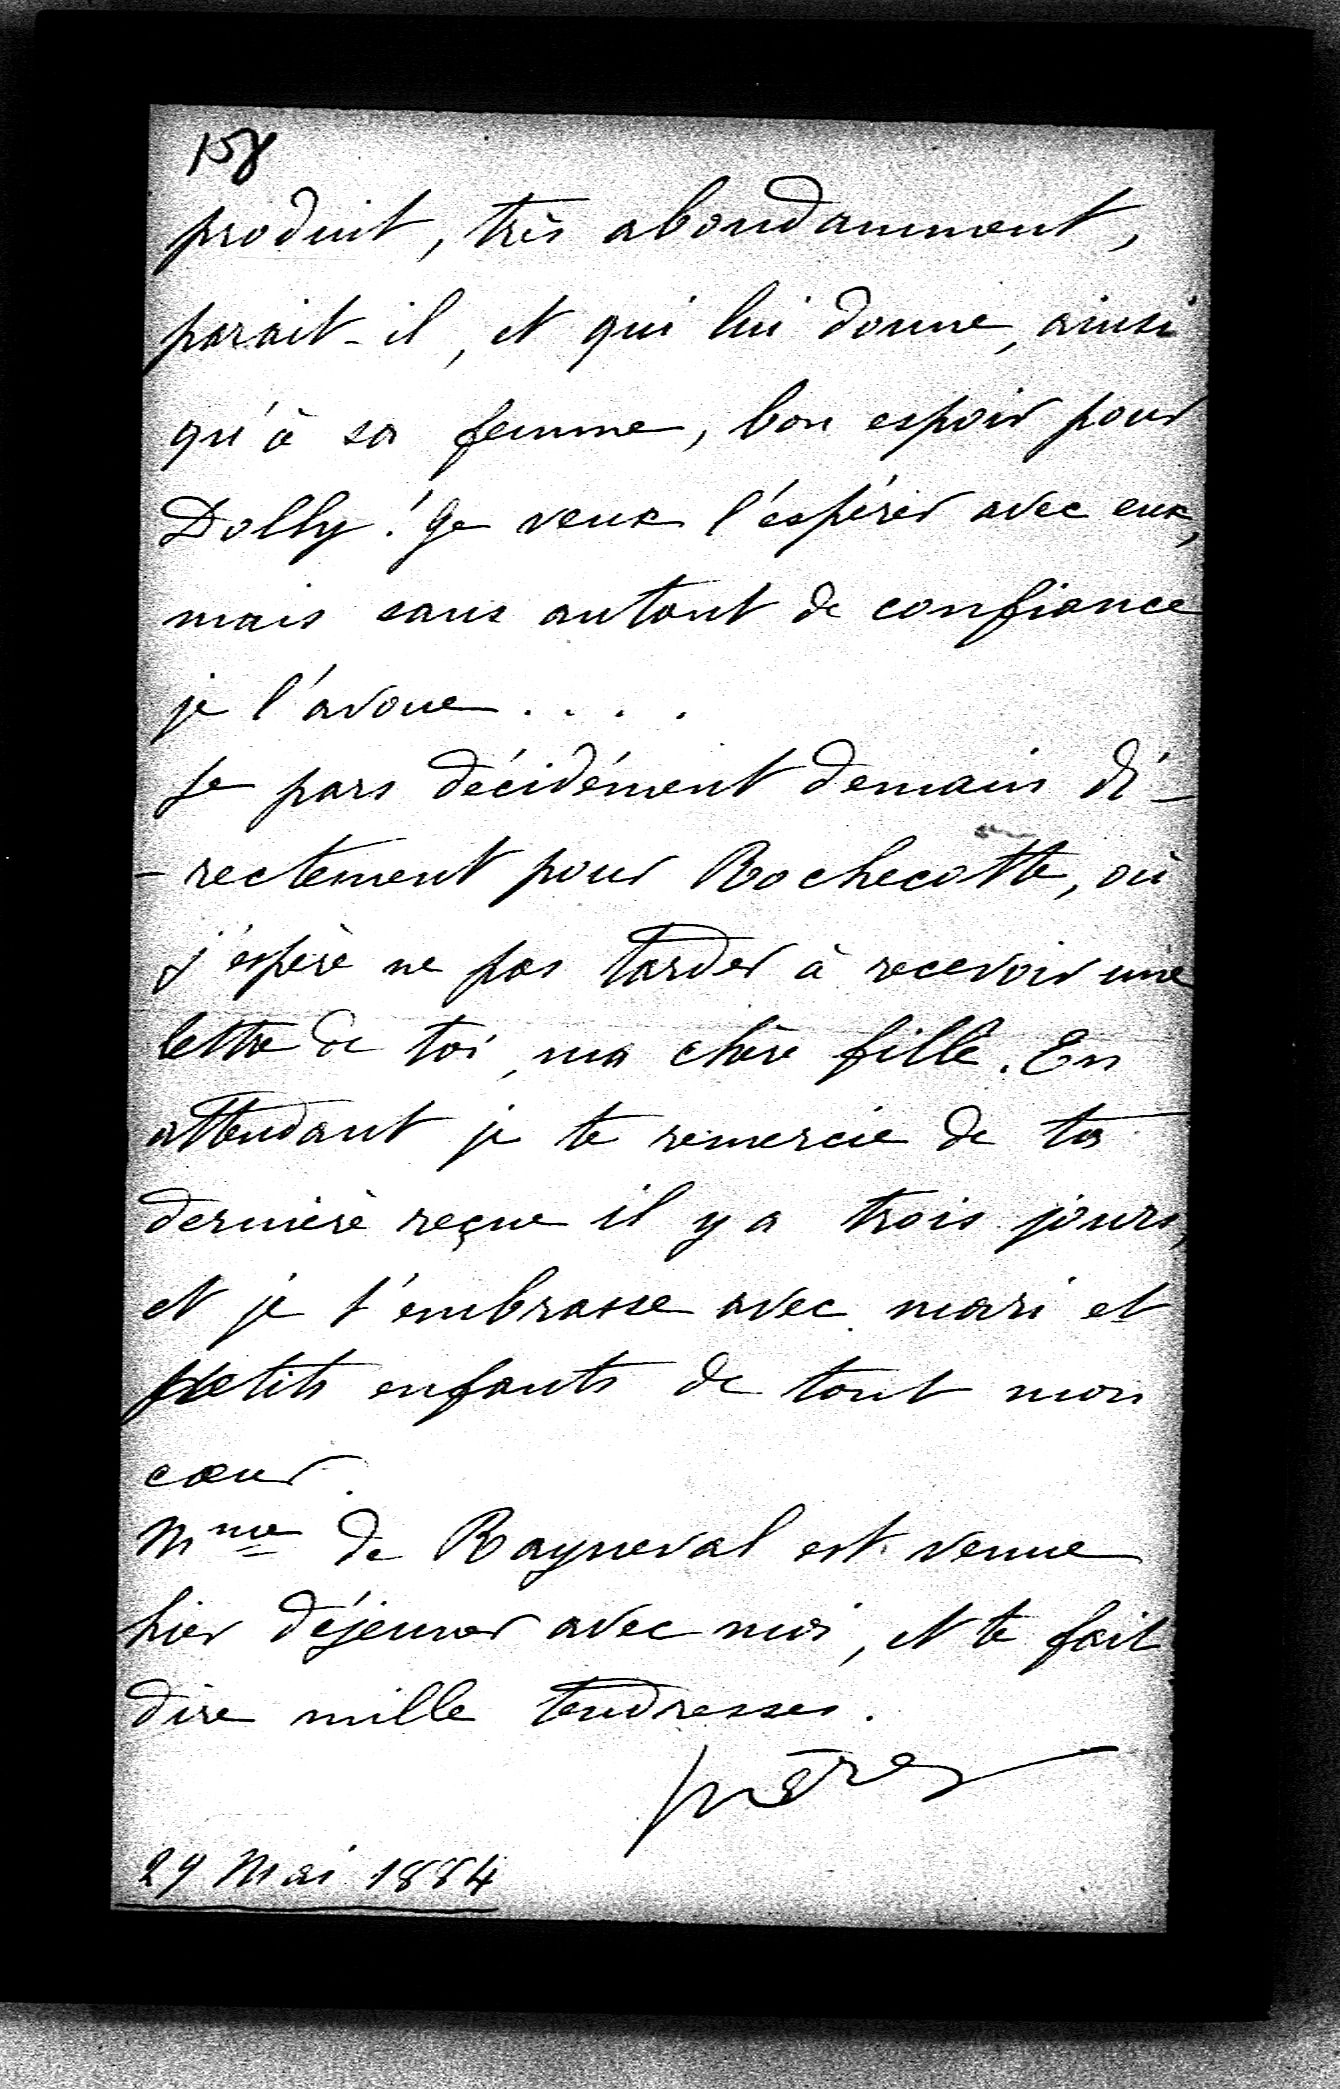 158
produit, très abondamment,
parait-il, et qui lui donne, ainsi
qu'à sa femme, bon espoir pour
Dolly! Je veux l'espérer avec eux,
mais sans autant de confiance
je l'avoue....
Je pars décidément demain di-
-rectement pour Rochecotte, où
j'espère ne pas tarder à recevoir une
lettre de toi, ma chère fille. En
attendant je te remercie de ta
dernière reçue il y a trois jours,
et je t'embrasse avec mari et
petits enfants de tout mon
cœur.
Mme de Rayneval est venue
hier déjeuner avec moi, et te fait
dire mille tendresses.
29 Mai 1884